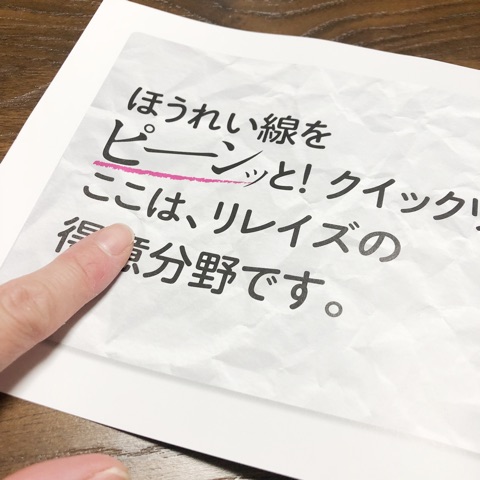 ほうれい線を
ピーンッと! クイック
ここは、リレイズの
得意分野です。